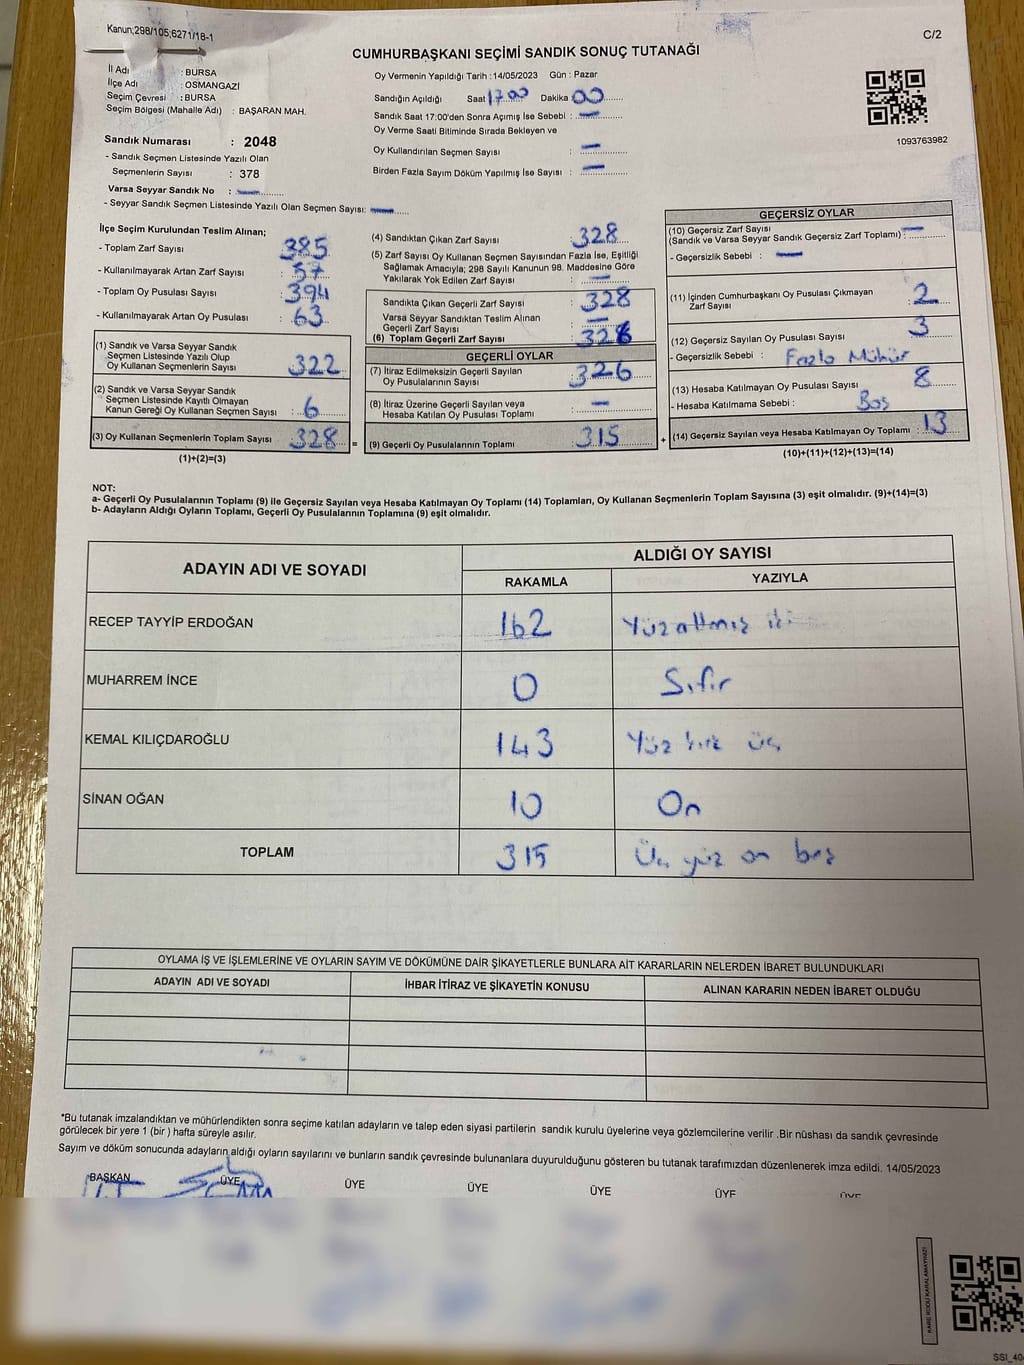 Kanun;298/105;6271/18-1
C/2
CUMHURBAŞKANI SEÇİMİ SANDIK SONUÇ TUTANAĞI
İl Adı : BURSA
İlçe Adı : OSMANGAZİ
Seçim Çevresi : BURSA
Seçim Bölgesi (Mahalle Adı) : BAŞARAN MAH.
Sandık Numarası : 2048
- Sandık Seçmen Listesinde Yazılı Olan
Seçmenlerin Sayısı : 378
Varsa Seyyar Sandık No : —
- Seyyar Sandık Seçmen Listesinde Yazılı Olan Seçmen Sayısı: —
Oy Vermenin Yapıldığı Tarih : 14/05/2023 Gün : Pazar
Sandığın Açıldığı Saat 17:00 Dakika : 00
Sandık Saat 17:00'den Sonra Açımış İse Sebebi : —
Oy Verme Saati Bitiminde Sırada Bekleyen ve
Oy Kullandırılan Seçmen Sayısı : —
Birden Fazla Sayım Döküm Yapılmış İse Sayısı : —
1093763982
İlçe Seçim Kurulundan Teslim Alınan;
- Toplam Zarf Sayısı : 385
- Kullanılmayarak Artan Zarf Sayısı : 57
- Toplam Oy Pusulası Sayısı : 394
- Kullanılmayarak Artan Oy Pusulası : 63
(1) Sandık ve Varsa Seyyar Sandık
Seçmen Listesinde Yazılı Olup
Oy Kullanan Seçmenlerin Sayısı : 322
(2) Sandık ve Varsa Seyyar Sandık
Seçmen Listesinde Kayıtlı Olmayan
Kanun Gereği Oy Kullanan Seçmen Sayısı : 6
(3) Oy Kullanan Seçmenlerin Toplam Sayısı : 328 =
(1)+(2)=(3)
(4) Sandıktan Çıkan Zarf Sayısı : 328
(5) Zarf Sayısı Oy Kullanan Seçmen Sayısından Fazla İse, Eşitliği
Sağlamak Amacıyla; 298 Sayılı Kanunun 98. Maddesine Göre
Yakılarak Yok Edilen Zarf Sayısı : —
Sandıkta Çıkan Geçerli Zarf Sayısı : 328
Varsa Seyyar Sandıktan Teslim Alınan
Geçerli Zarf Sayısı : —
(6) Toplam Geçerli Zarf Sayısı : 326
GEÇERLİ OYLAR
(7) İtiraz Edilmeksizin Geçerli Sayılan
Oy Pusulalarının Sayısı : 326
(8) İtiraz Üzerine Geçerli Sayılan veya
Hesaba Katılan Oy Pusulası Toplamı : —
(9) Geçerli Oy Pusulalarının Toplamı : 315 +
GEÇERSİZ OYLAR
(10) Geçersiz Zarf Sayısı
(Sandık ve Varsa Seyyar Sandık Geçersiz Zarf Toplamı) : —
- Geçersizlik Sebebi : —
(11) İçinden Cumhurbaşkanı Oy Pusulası Çıkmayan
Zarf Sayısı : 2
(12) Geçersiz Sayılan Oy Pusulası Sayısı : 3
- Geçersizlik Sebebi : Fazla Mühür
(13) Hesaba Katılmayan Oy Pusulası Sayısı : 8
- Hesaba Katılmama Sebebi : Boş
(14) Geçersiz Sayılan veya Hesaba Katılmayan Oy Toplamı : 13
(10)+(11)+(12)+(13)=(14)
NOT:
a- Geçerli Oy Pusulalarının Toplamı (9) ile Geçersiz Sayılan veya Hesaba Katılmayan Oy Toplamı (14) Toplamları, Oy Kullanan Seçmenlerin Toplam Sayısına (3) eşit olmalıdır. (9)+(14)=(3)
b- Adayların Aldığı Oyların Toplamı, Geçerli Oy Pusulalarının Toplamına (9) eşit olmalıdır.
ADAYIN ADI VE SOYADI
ALDIĞI OY SAYISI
RAKAMLA YAZIYLA
RECEP TAYYİP ERDOĞAN 162 Yüz altmış iki
MUHARREM İNCE 0 Sıfır
KEMAL KILIÇDAROĞLU 143 Yüz kırk üç
SİNAN OĞAN 10 On
TOPLAM 315 Üç yüz on beş
OYLAMA İŞ VE İŞLEMLERİNE VE OYLARIN SAYIM VE DÖKÜMÜNE DAİR ŞİKAYETLERLE BUNLARA AİT KARARLARIN NELERDEN İBARET BULUNDUKLARI
ADAYIN ADI VE SOYADI İHBAR İTİRAZ VE ŞİKAYETİN KONUSU ALINAN KARARIN NEDEN İBARET OLDUĞU
*Bu tutanak imzalandıktan ve mühürlendikten sonra seçime katılan adayların ve talep eden siyasi partilerin sandık kurulu üyelerine veya gözlemcilerine verilir .Bir nüshası da sandık çevresinde
görülecek bir yere 1 (bir ) hafta süreyle asılır.
Sayım ve döküm sonucunda adayların aldığı oyların sayılarını ve bunların sandık çevresinde bulunanlara duyurulduğunu gösteren bu tutanak tarafımızdan düzenlenerek imza edildi. 14/05/2023
BAŞKAN ÜYE ÜYE ÜYE ÜYE ÜYE ÜYE
KARE KODU KARALAMAYINIZ!
SSI_40